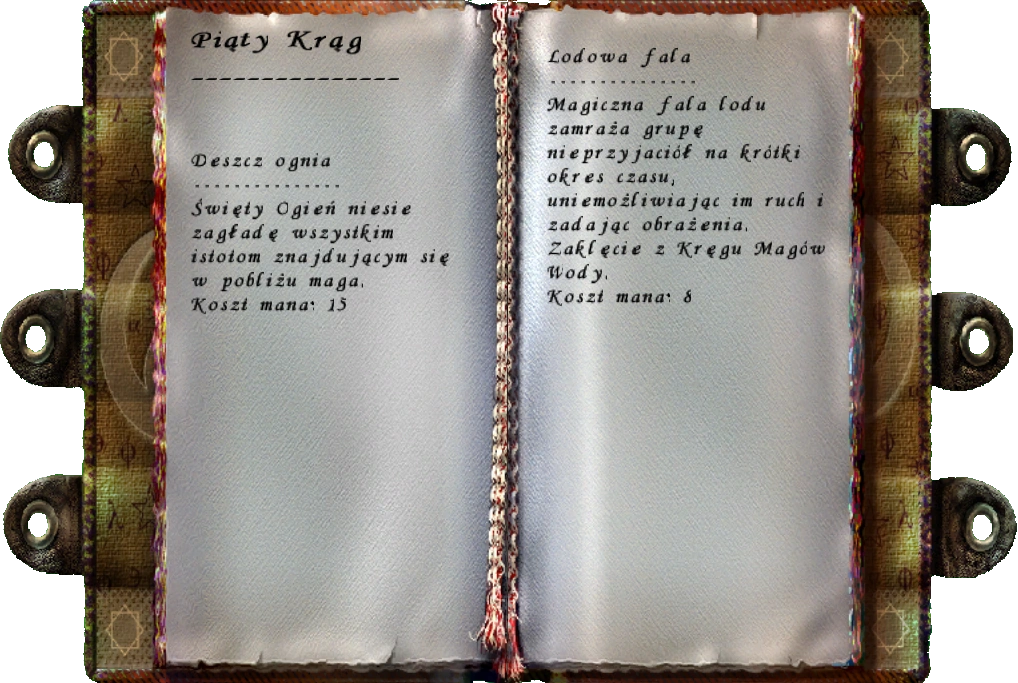 Piąty Krąg
---------------
Deszcz ognia
---------------
Święty Ogień niesie
zagładę wszystkim
istotom znajdującym się
w pobliżu maga.
Koszt mana: 15
Lodowa fala
---------------
Magiczna fala lodu
zamraża grupę
nieprzyjaciół na krótki
okres czasu,
uniemożliwiając im ruch i
zadając obrażenia.
Zaklęcie z Kręgu Magów
Wody.
Koszt mana: 8